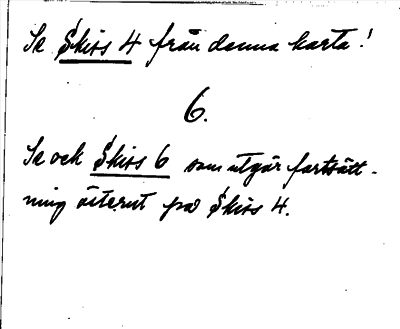 Se Skiss 4 från denna karta!
6.
Se och Skiss 6 som utgör fortsätt-
ning österut på Skiss 4.